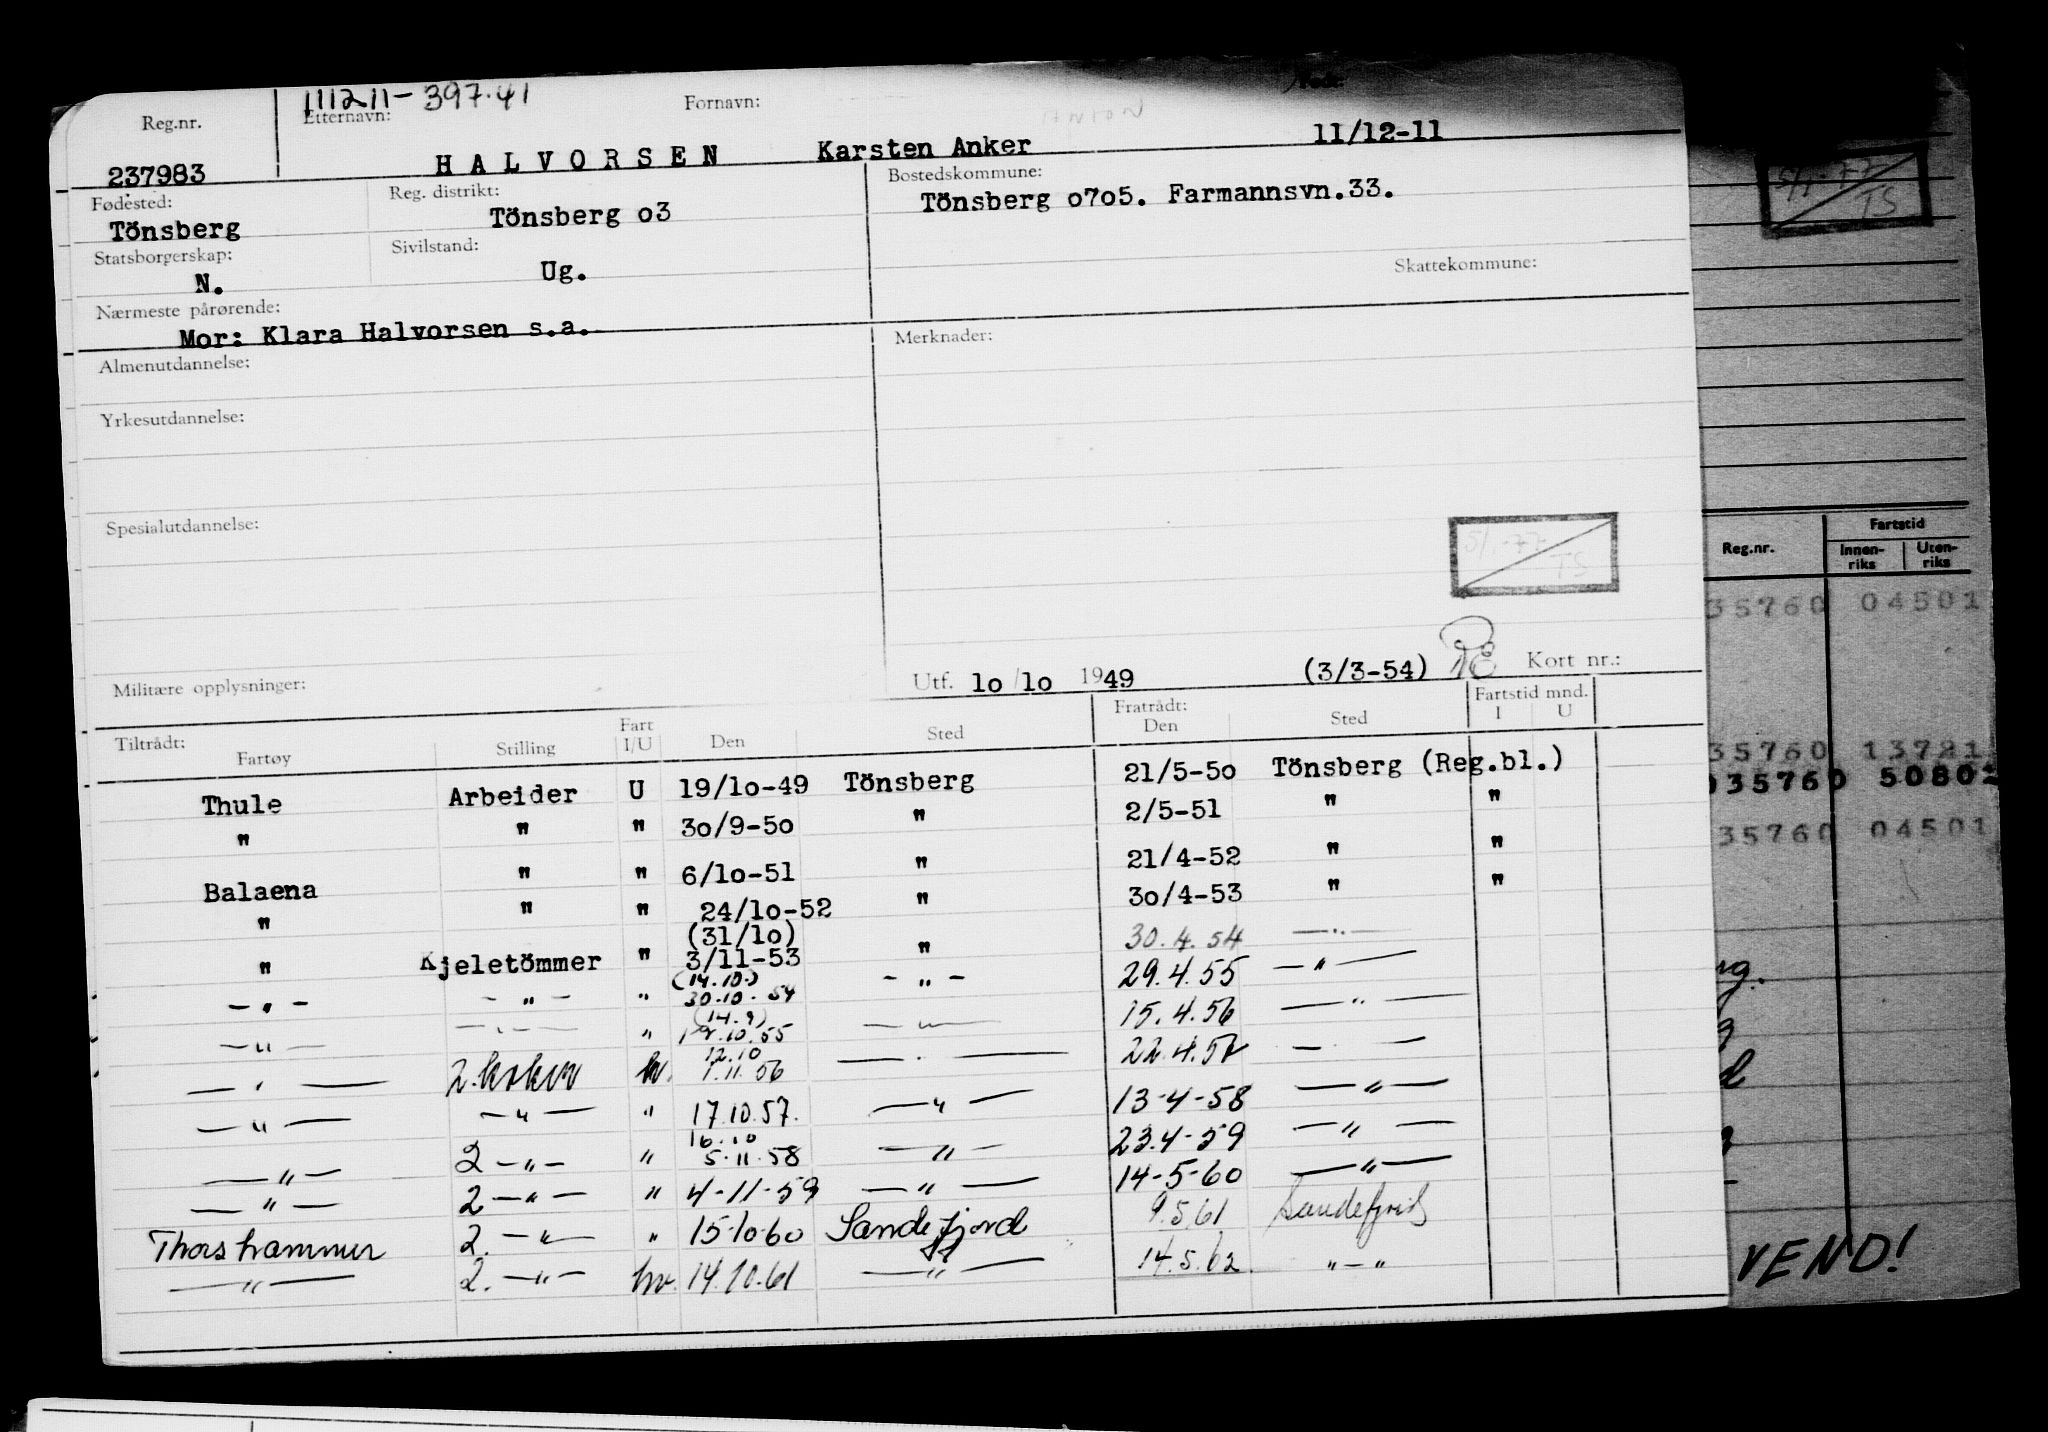 111211-397.41
Reg.nr. Etternavn: Fornavn: Født:
ANTON
237983 HALVORSEN Karsten Anker 11/12-11
Fødested: Reg. distrikt: Bostedskommune:
Tönsberg Tönsberg o3 Tönsberg o7o5. Farmannsvn.33.
Statsborgerskap: Sivilstand: Skattekommune:
N. Ug.
Nærmeste pårørende:
Mor: Klara Halvorsen s.a.
Almenutdannelse: Merknader:
Yrkesutdannelse:
Spesialutdannelse:
5/1.-77
TS
Militære opplysninger: Utf. lo/lo 1949 (3/3-54) Kort nr.:
Tiltrådt: Fratrådt: Fartstid mnd.
Fartøy Stilling Fart I/U Den Sted Den Sted I U
Thule Arbeider U 19/lo-49 Tönsberg 21/5-5o Tönsberg (Reg.bl.)
" " " 3o/9-5o " 2/5-51 " "
Balaena " " 6/lo-51 " 21/4-52 " "
" " " 24/lo-52 " 3o/4-53 " "
(31/lo)
" Kjeletömmer " 3/11-53 " 30.4.54 — " —
(14.10.)
— " — — " — " 30.10.54 — " — 29.4.55 — " —
(14.9)
— " — — " — " 19.10.55 — " — 15.4.56 — " —
12.10
— " — 2. koker hv. 1.11.56 — " — 22.4.57 — " —
— " — — " — " 17.10.57. — " — 13-4-58 — " —
16.10
— " — 2 — " — " 5.11.58 — " — 23.4-59 — " —
— " — 2 — " — " 4-11-59 — " — 14-5-60 — " —
Thorshammer 2. — " — " 15-10-60 Sandefjord 9.5.61 Sandefjord
— " — 2. — " — hv. 14.10.61 — " — 14.5.62 " — "
5/1.-77
TS
Reg.nr. Fartstid
Innen-riks Uten-riks
35760 04501
35760 13721
035760 50802
35760 04501
VEND!